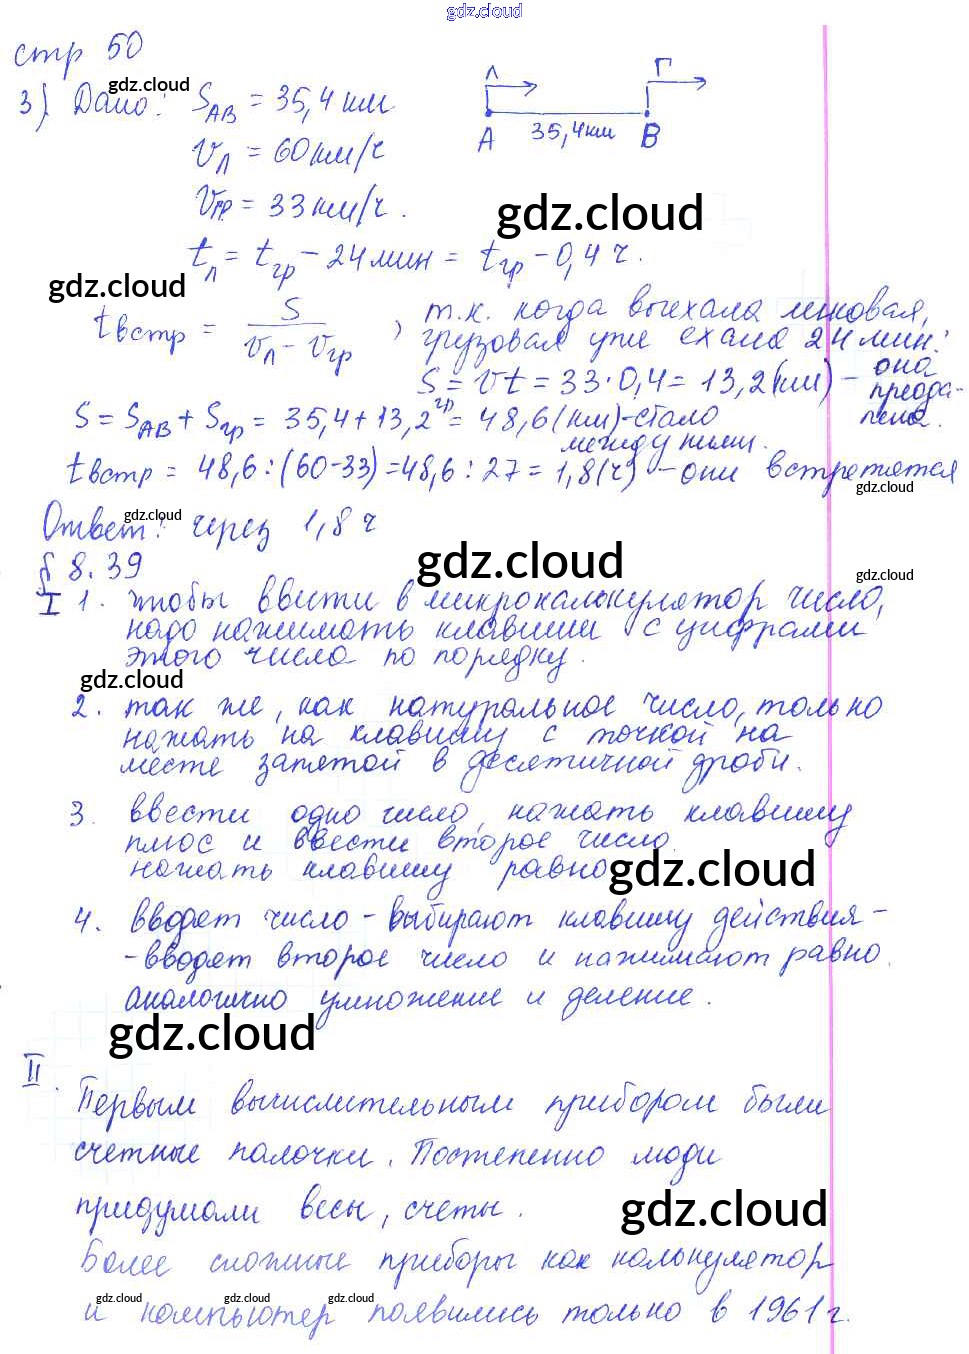 gdz.cloud
стр 50
gdz.cloud
3) Дано: S_AB = 35,4 км
Л Г
А 35,4км В
v_Л = 60 км/ч
v_гр = 33 км/ч.
gdz.cloud
t_л = t_гр - 24 мин = t_гр - 0,4 ч.
gdz.cloud
t встр = S / (v_Л - v_гр) , т.к. когда выехала легковая,
грузовая уже ехала 24 мин:
S = vt = 33·0,4 = 13,2 (км) - она
преода-
лела.
S = S_AB + S_гр = 35,4 + 13,2 = 48,6 (км) - стало
между ними.
t встр = 48,6 : (60-33) = 48,6 : 27 = 1,8 (ч) - они встретятся
gdz.cloud
Ответ: через 1,8 ч
gdz.cloud
gdz.cloud
§ 8.39
gdz.cloud
I 1. чтобы ввести в микрокалькулятор число,
надо нажимать клавиши с цифрами
этого числа по порядку.
gdz.cloud
2. так же, как натуральное число, только
нажать на клавишу с точкой на
месте запятой в десятичной дроби.
3. ввести одно число, нажать клавишу
плюс и ввести второе число.
нажать клавишу равно
gdz.cloud
4. вводят число - выбирают клавишу действия -
- вводят второе число и нажимают равно.
аналогично умножение и деление.
gdz.cloud
II.
Первым вычислительным прибором были
счетные палочки. Постепенно люди
придумали весы, счеты.
gdz.cloud
Более сложные приборы как калькулятор
gdz.cloud gdz.cloud gdz.cloud gdz.cloud
и компьютер появились только в 1961 г.